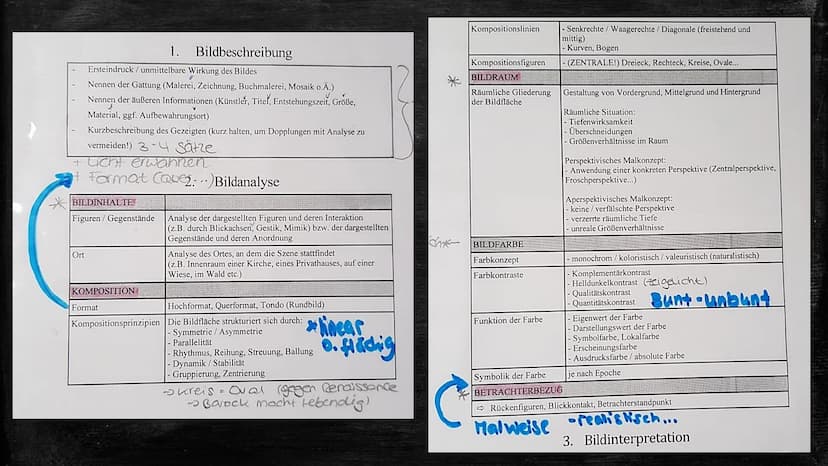 1. Bildbeschreibung
- Ersteindruck / unmittelbare Wirkung des Bildes
- Nennen der Gattung (Malerei, Zeichnung, Buchmalerei, Mosaik o.Ä.)
- Nennen der äußeren Informationen (Künstler, Titel, Entstehungszeit, Größe,
Material, ggf. Aufbewahrungsort)
- Kurzbeschreibung des Gezeigten (kurz halten, um Dopplungen mit Analyse zu
vermeiden!) 3-4 Sätze
+ Licht erwähnen
+ Format (quer...)
2. Bildanalyse
BILDINHALTE
Figuren / Gegenstände Analyse der dargestellten Figuren und deren Interaktion
(z.B. durch Blickachsen, Gestik, Mimik) bzw. der dargestellten
Gegenstände und deren Anordnung
Ort Analyse des Ortes, an dem die Szene stattfindet
(z.B. Innenraum einer Kirche, eines Privathauses, auf einer
Wiese, im Wald etc.)
KOMPOSITION
Format Hochformat, Querformat, Tondo (Rundbild)
Kompositionsprinzipien Die Bildfläche strukturiert sich durch:
- Symmetrie / Asymmetrie
- Parallelität
- Rhythmus, Reihung, Streuung, Ballung
- Dynamik / Stabilität
- Gruppierung, Zentrierung
* linear
o. flächig
-> Kreis = Oval (gegen Renaissance
-> Barock macht lebendig)
Kompositionslinien - Senkrechte / Waagerechte / Diagonale (freistehend und
mittig)
- Kurven, Bogen
Kompositionsfiguren - (ZENTRALE!) Dreieck, Rechteck, Kreise, Ovale...
BILDRAUM
Räumliche Gliederung Gestaltung von Vordergrund, Mittelgrund und Hintergrund
der Bildfläche
Räumliche Situation:
- Tiefenwirksamkeit
- Überschneidungen
- Größenverhältnisse im Raum
Perspektivisches Malkonzept:
- Anwendung einer konkreten Perspektive (Zentralperspektive,
Froschperspektive...)
Aperspektivisches Malkonzept:
- keine / verfälschte Perspektive
- verzerrte räumliche Tiefe
- unreale Größenverhältnisse
BILDFARBE
Farbkonzept - monochrom / koloristisch / valeuristisch (naturalistisch)
Farbkontraste - Komplementärkontrast
- Helldunkelkontrast
- Qualitätskontrast
- Quantitätskontrast Bunt-unbunt
Funktion der Farbe - Eigenwert der Farbe
- Darstellungswert der Farbe
- Symbolfarbe, Lokalfarbe
- Erscheinungsfarbe
- Ausdrucksfarbe / absolute Farbe
Symbolik der Farbe je nach Epoche
BETRACHTERBEZUG
⇨ Rückenfiguren, Blickkontakt, Betrachterstandpunkt
Malweise - realistisch...
3. Bildinterpretation